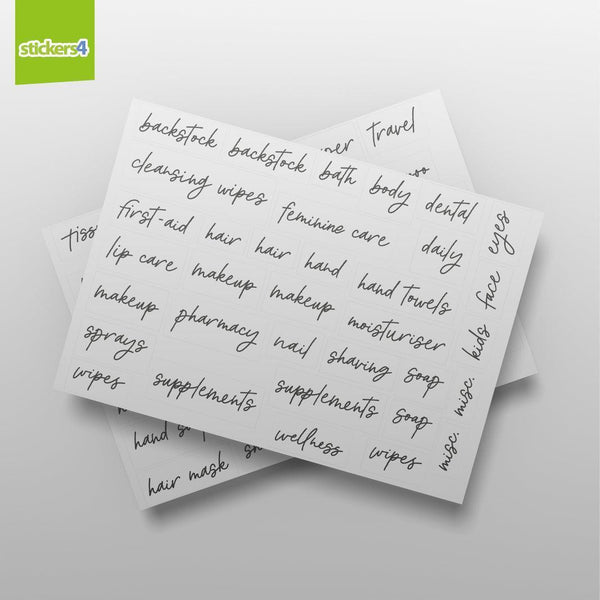 stickers4
travel
backstock backstock bath body dental
cleansing wipes feminine care daily eyes
first-aid hair hair hand hand towels face
lip care makeup makeup moisturiser kids
makeup pharmacy nail shaving soap misc.
sprays supplements supplements soap misc.
wipes wellness wipes
hair mask
hand